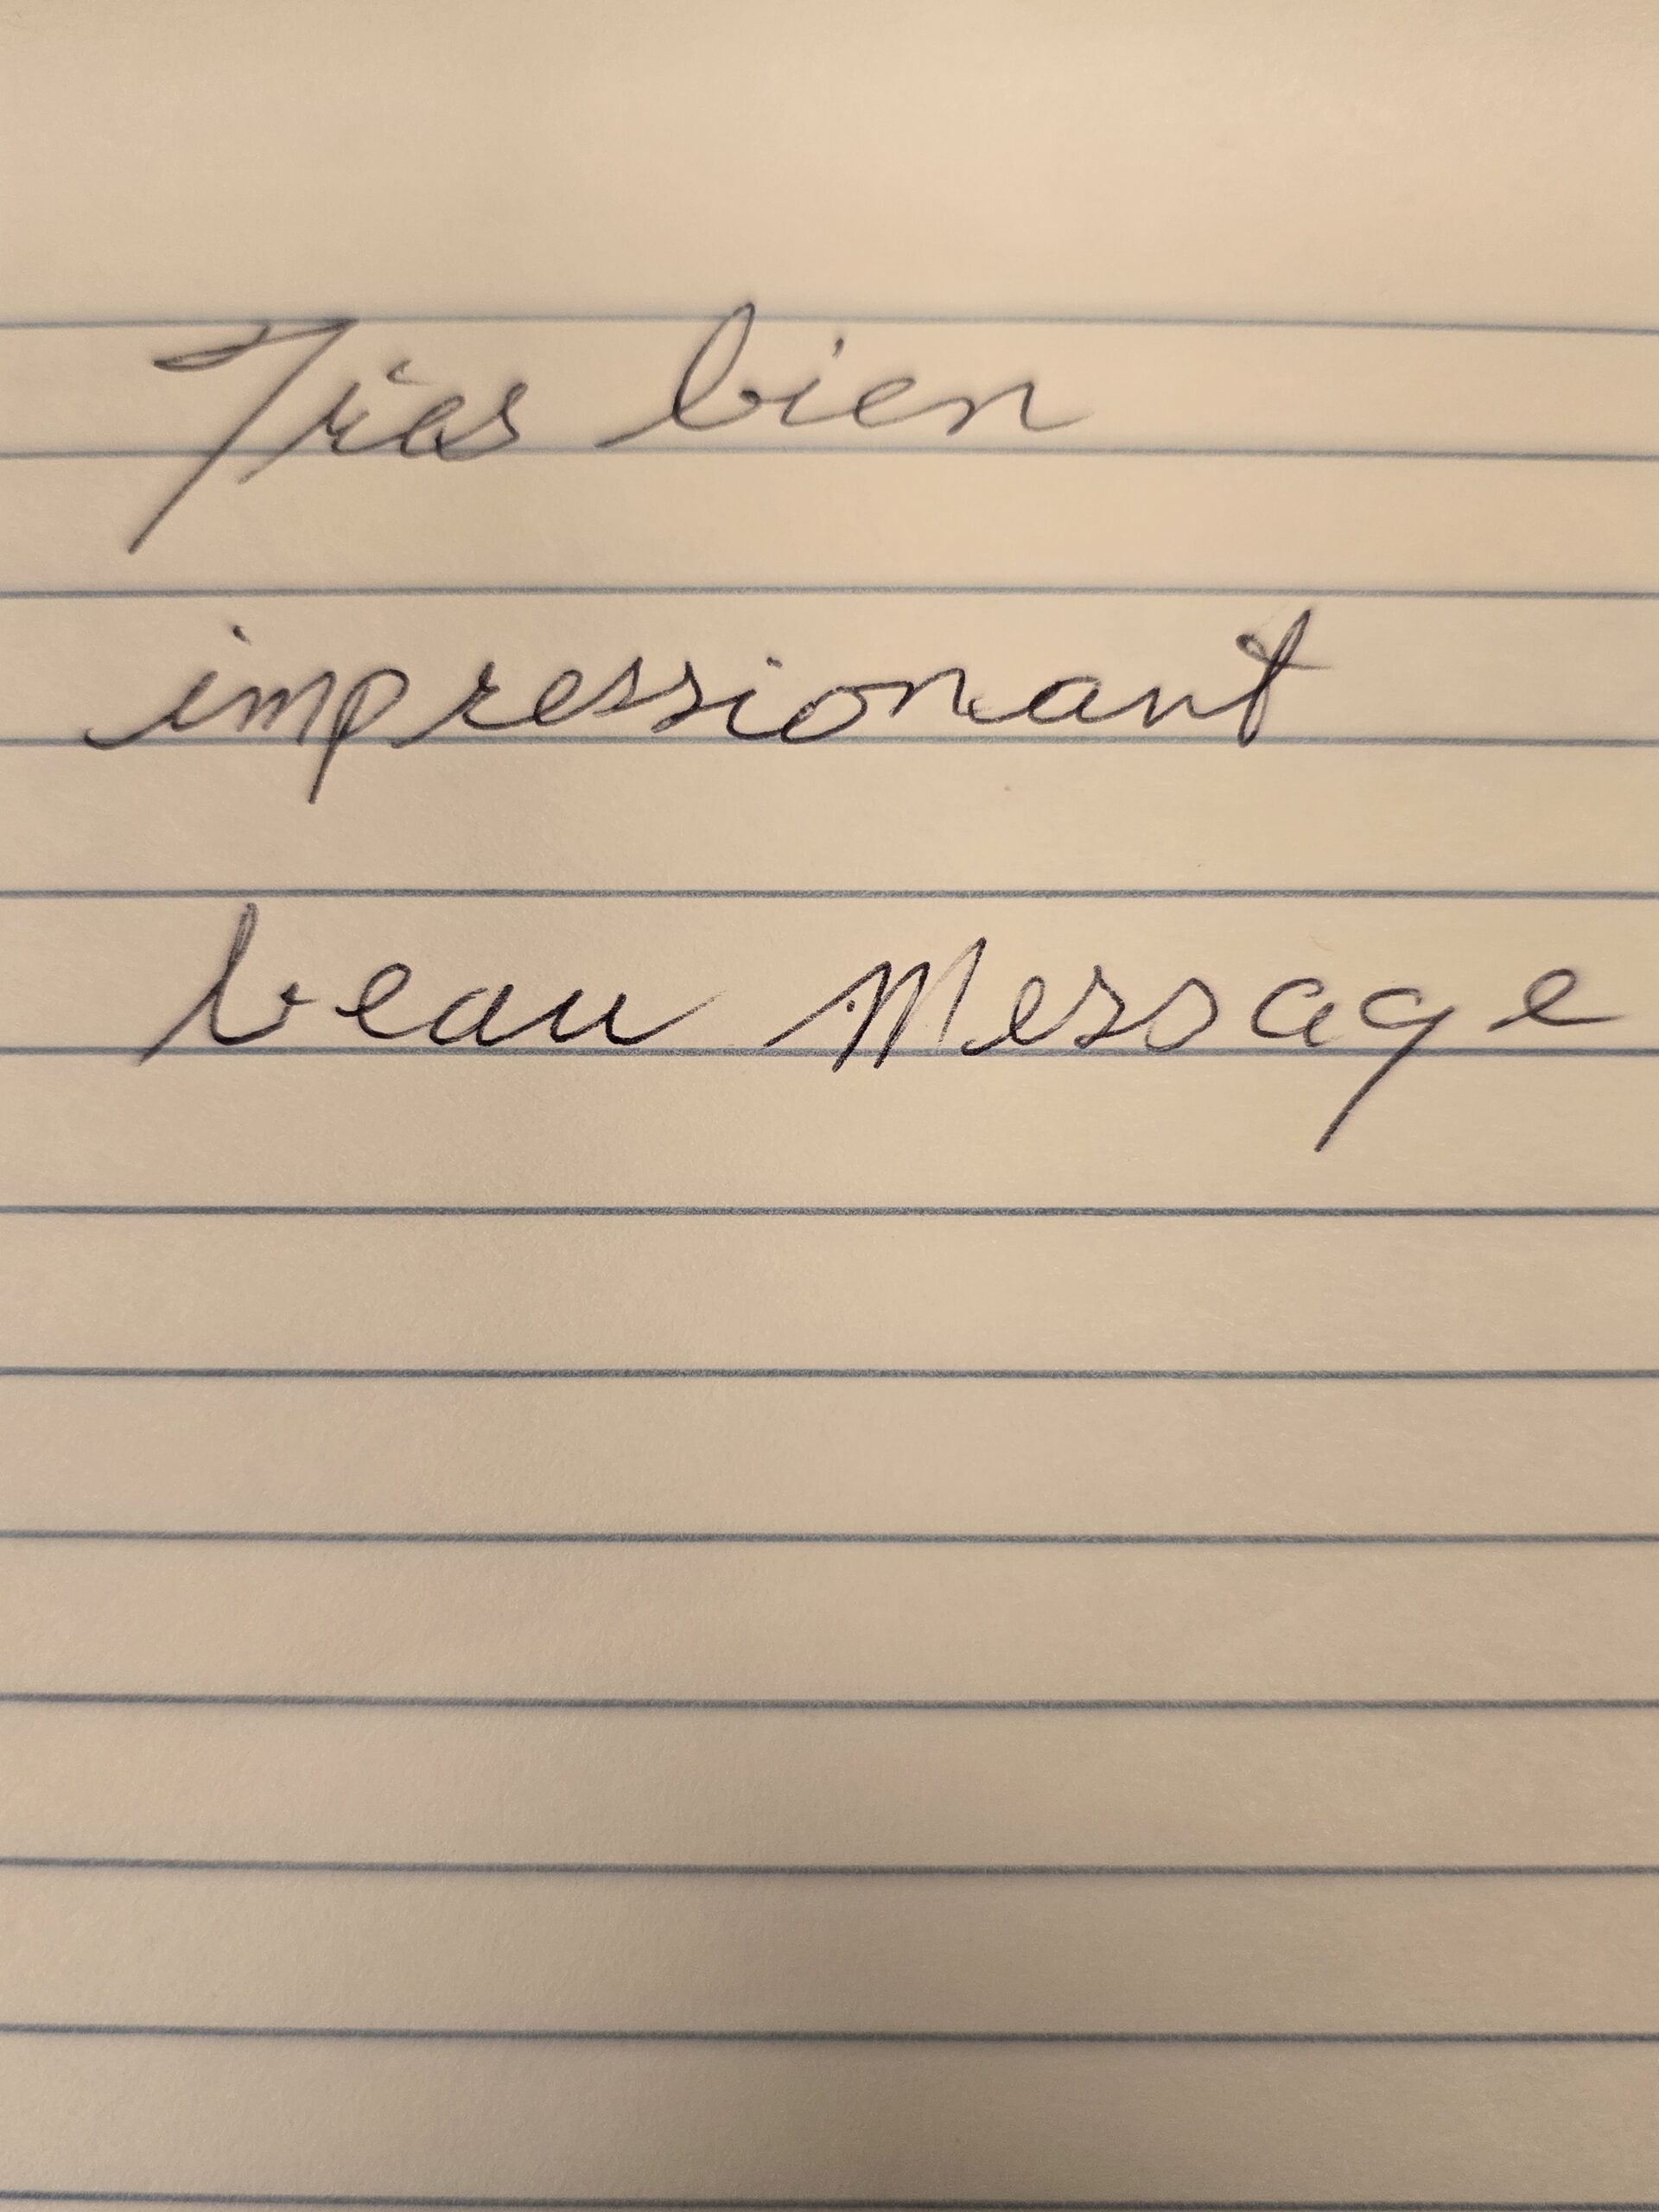 Très bien
impressionant
beau Message